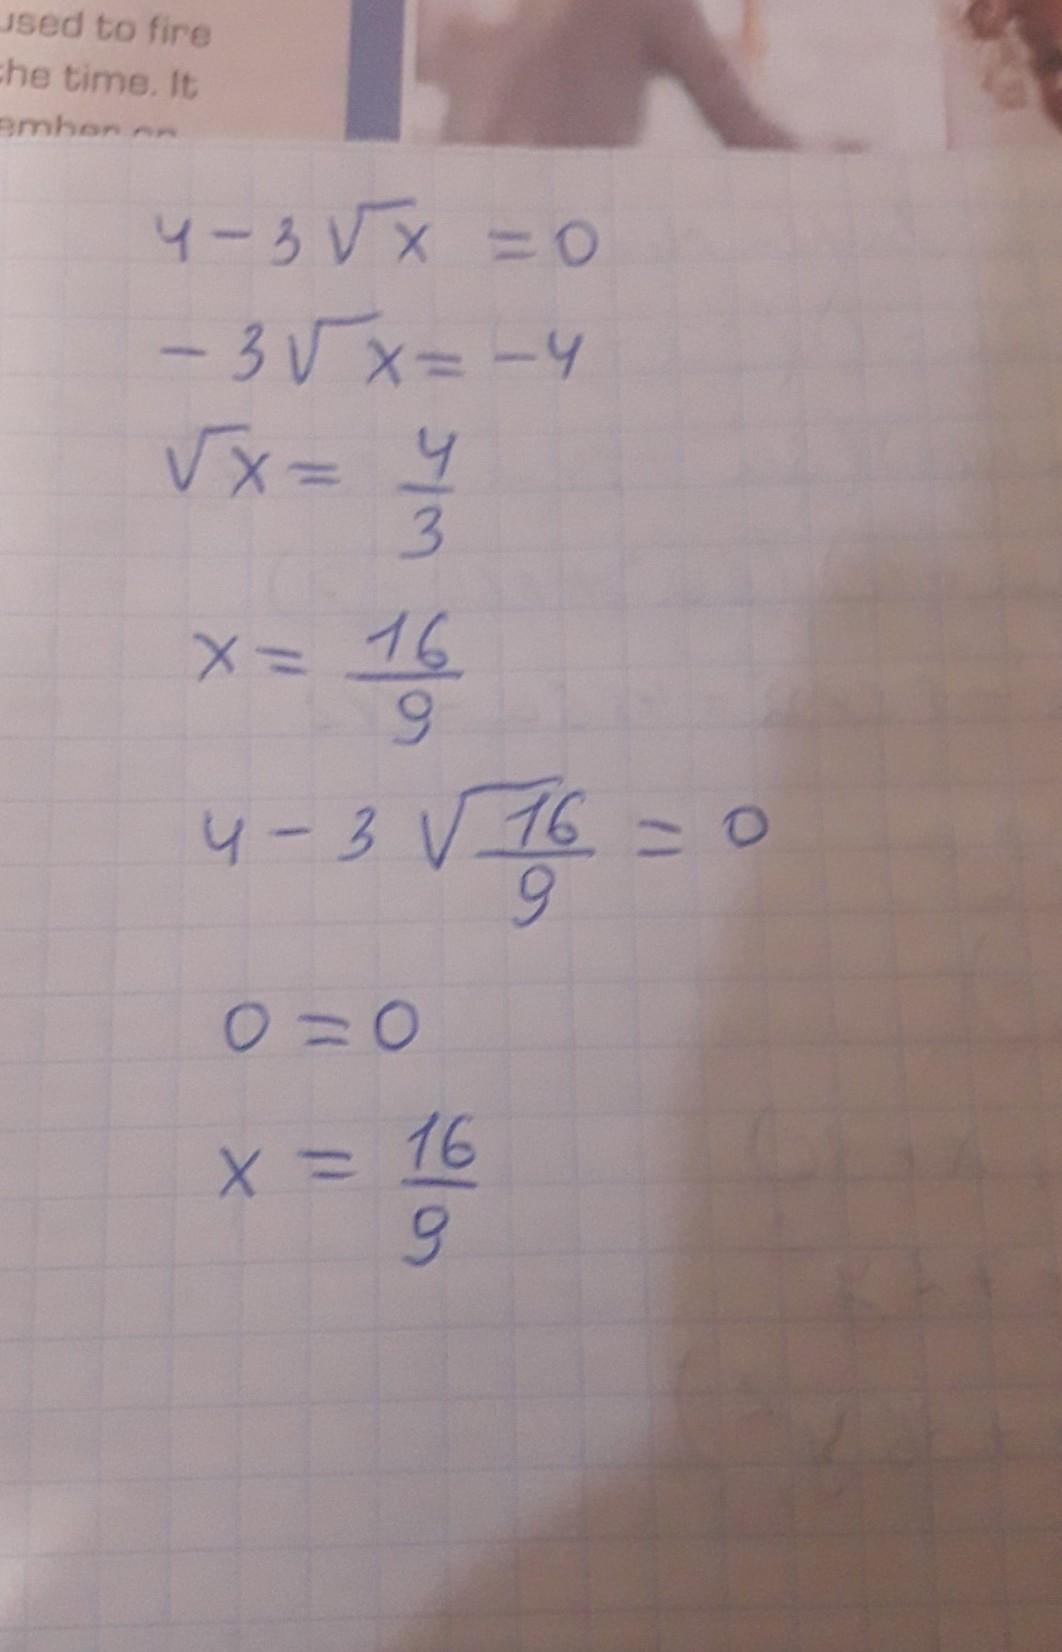 used to fire
the time. It
4 - 3√x = 0
- 3√x = - 4
√x = 4/3
x = 16/9
4 - 3√16/9 = 0
0 = 0
x = 16/9